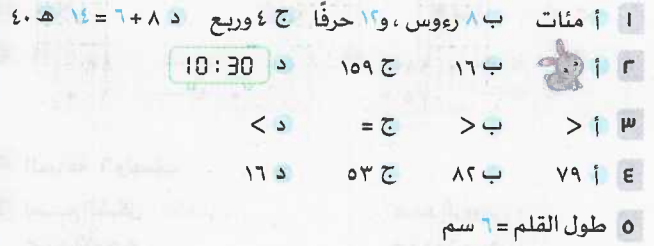 ١ أ مئات ب ٨ رءوس ، و١٢ حرفًا ج ٤ وربع د ٨ + ٦ = ١٤ هـ ٤٠
٢ أ ب ١٦ ج ١٥٩ د 10:30
٣ أ > ب > ج = د <
٤ أ ٧٩ ب ٨٢ ج ٥٣ د ١٦
٥ طول القلم = ٦ سم